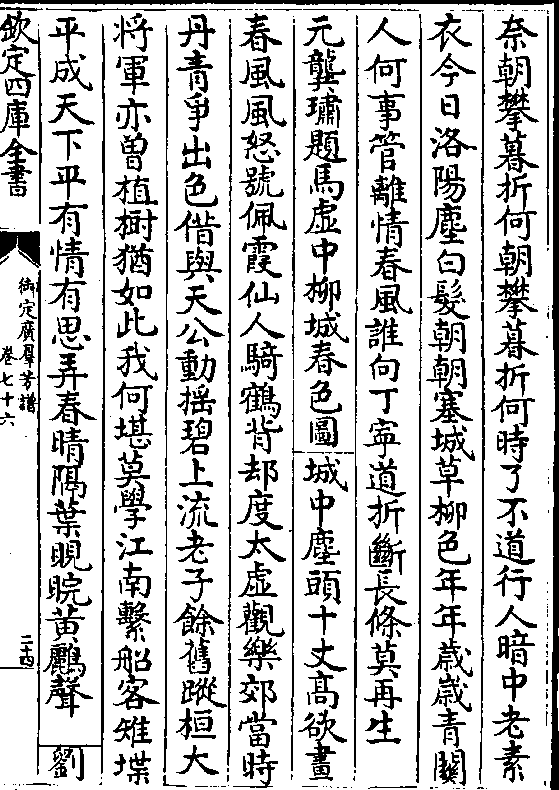 奈朝攀暮折何朝攀暮折何時了不道行人暗中老素
衣今日洛陽塵白髮朝朝塞城草柳色年年歲歲青關
人何事管離情春風誰向丁寧道折斷長條莫再生
元龔璛題馬虛中柳城春色圖 城中塵頭十丈高欲畫
春風風怒號佩霞仙人騎鶴背却度太虛觀樂郊當時
丹青爭出色借與天公動搖碧上流老子餘舊蹤桓大
將軍亦曾植樹猶如此我何堪莫學江南繫船客雉堞
平成天下平有情有思弄春晴隔葉睍睆黃鸝聲 劉
欽定四庫全書
御定廣羣芳譜
卷七十六
二十四